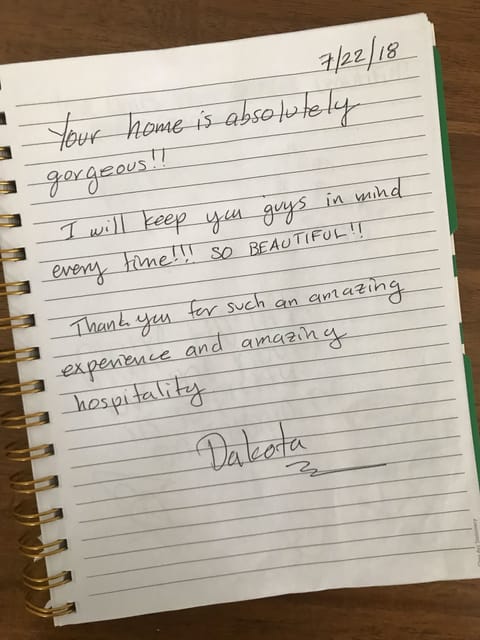 7/22/18
Your home is absolutely
gorgeous!!
I will keep you guys in mind
every time!!! SO BEAUTIFUL!!
Thank you for such an amazing
experience and amazing
hospitality
Dakota